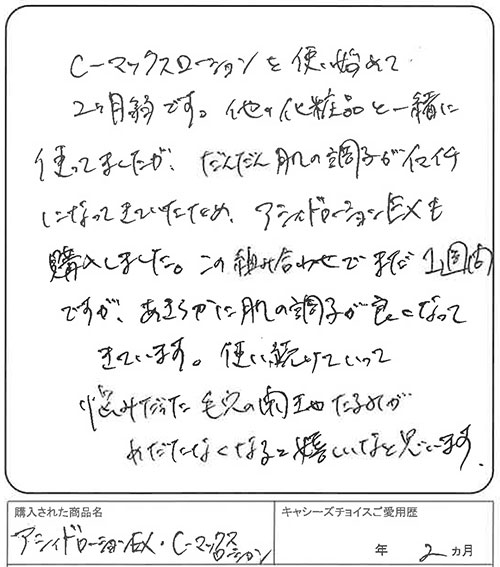 C-マックスローションを使い始めて
2ヶ月弱です。他の化粧品と一緒に
使ってましたが、だんだん肌の調子がイマイチ
になってきていたため、アシィドローションEXも
購入しました。この組み合わせでまだ1週間
ですが、あきらかに肌の調子が良くなって
きています。使い続けていって
悩みだった毛穴の開きやたるみが
めだたなくなると嬉しいなと思います。
購入された商品名
キャシーズチョイスご愛用歴
アシィドローションEX・C-マックス
ローション
年 2 カ月